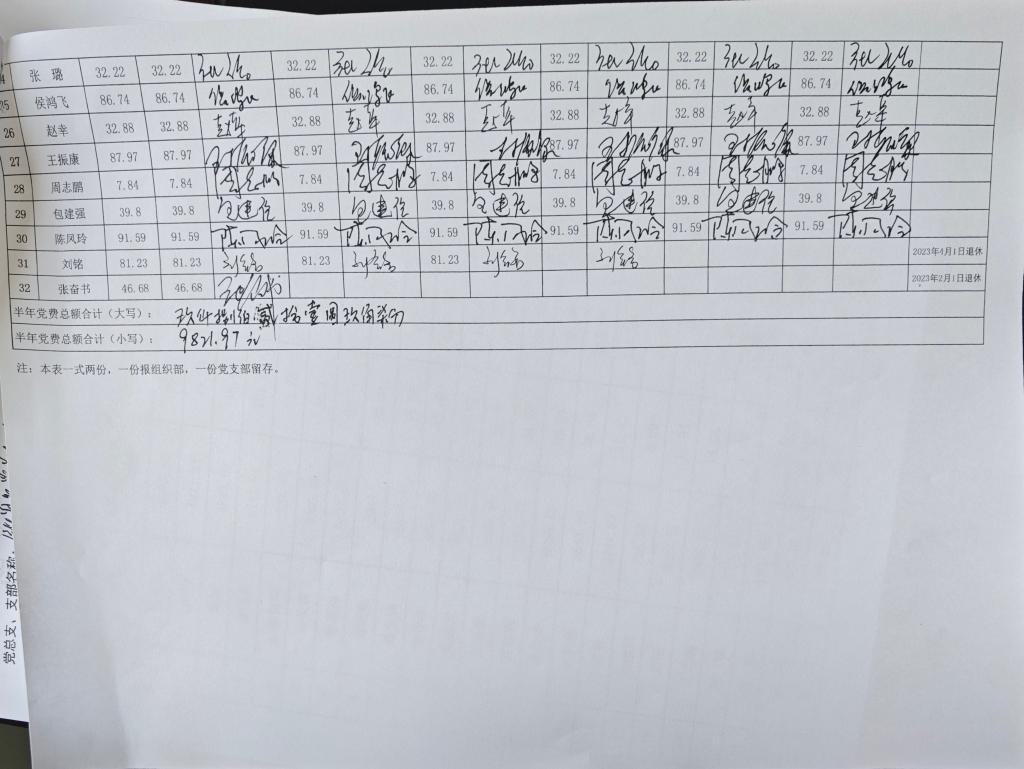 24 张 璐 32.22 32.22 张璐 32.22 张璐 32.22 张璐 32.22 张璐 32.22 张璐 32.22 张璐
25 侯鸿飞 86.74 86.74 侯鸿飞 86.74 侯鸿飞 86.74 侯鸿飞 86.74 侯鸿飞 86.74 侯鸿飞 86.74 侯鸿飞
26 赵幸 32.88 32.88 赵幸 32.88 赵幸 32.88 赵幸 32.88 赵幸 32.88 赵幸 32.88 赵幸
27 王振康 87.97 87.97 王振康 87.97 王振康 87.97 王振康 87.97 王振康 87.97 王振康 87.97 王振康
28 周志鹏 7.84 7.84 周志鹏 7.84 周志鹏 7.84 周志鹏 7.84 周志鹏 7.84 周志鹏 7.84 周志鹏
29 包建强 39.8 39.8 包建强 39.8 包建强 39.8 包建强 39.8 包建强 39.8 包建强 39.8 包建强
30 陈凤玲 91.59 91.59 陈凤玲 91.59 陈凤玲 91.59 陈凤玲 91.59 陈凤玲 91.59 陈凤玲 91.59 陈凤玲
31 刘铭 81.23 81.23 刘铭 81.23 刘铭 81.23 刘铭 刘铭 2023年4月1日退休
32 张奋书 46.68 46.68 张奋书 2023年2月1日退休
半年党费总额合计（大写）： 玖仟捌佰贰拾壹圆玖角柒分
半年党费总额合计（小写）： 9821.97元
注：本表一式两份，一份报组织部，一份党支部留存。
党总支、支部名称：